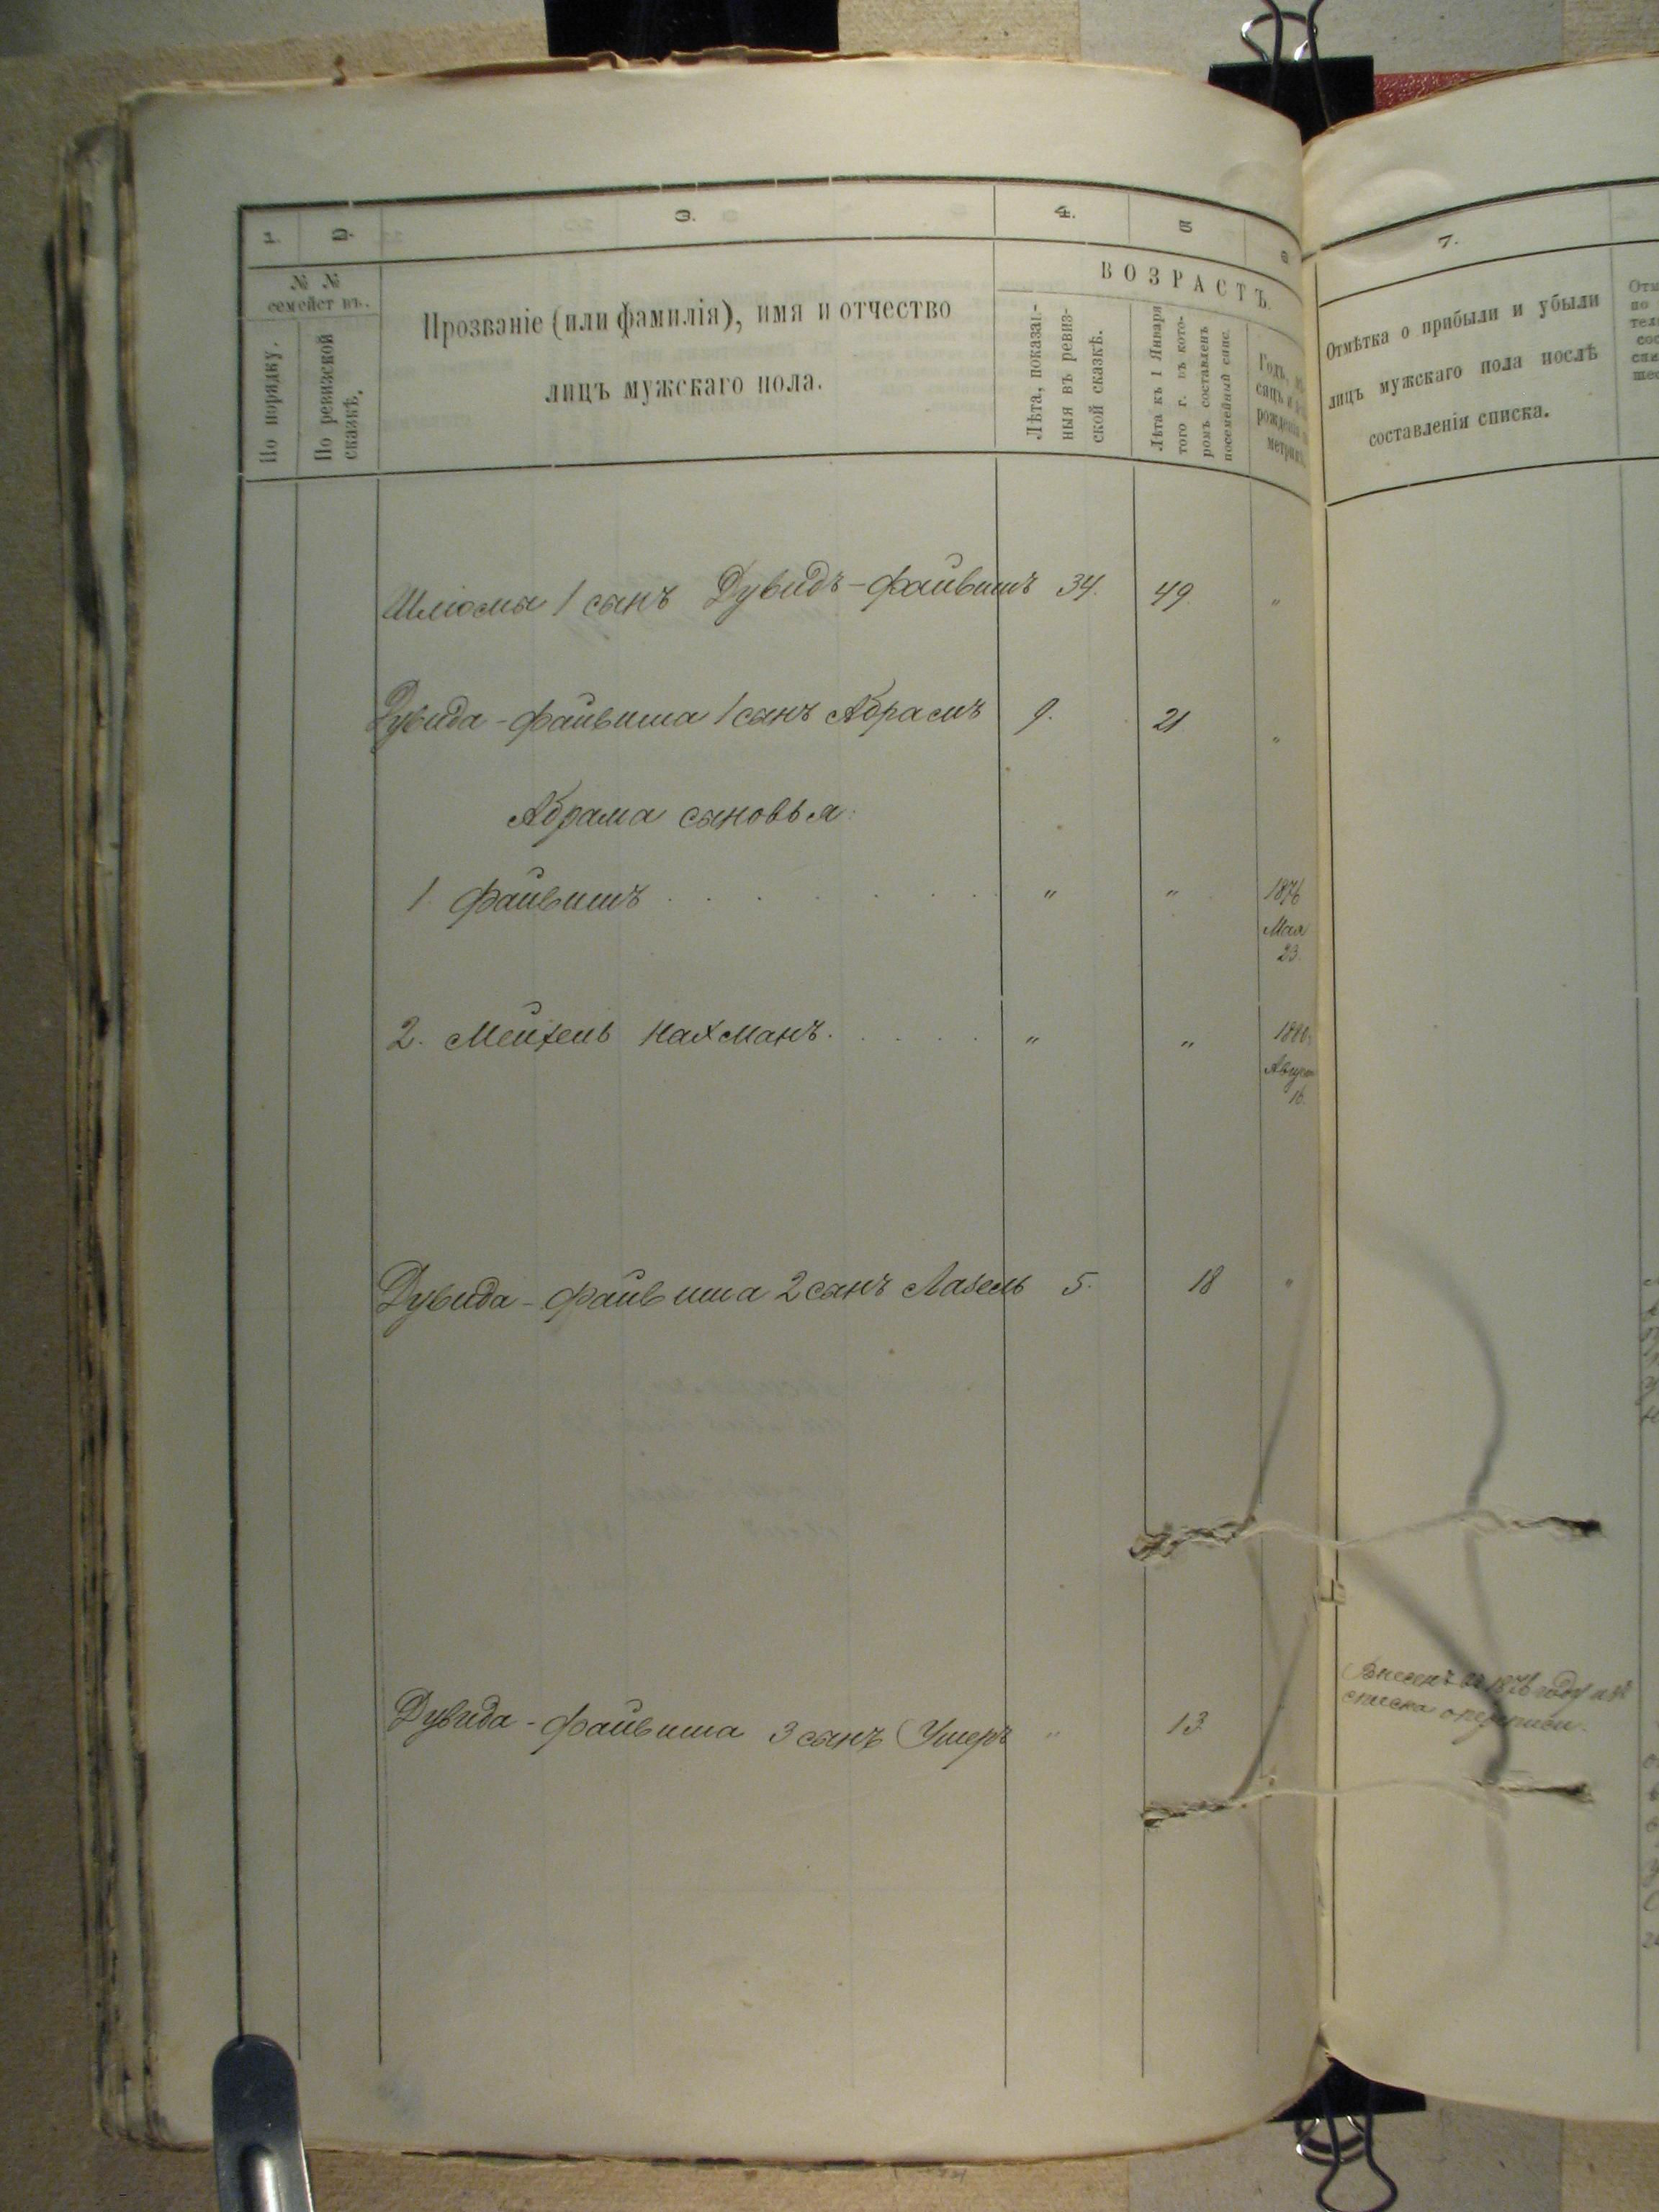 1. 2. 3. 4. 5 6 7.
№ № семействъ.
По порядку.
По ревизской сказкѣ.
Прозваніе (или фамилія), имя и отчество
лицъ мужскаго пола.
ВОЗРАСТЪ.
Лѣта, показан-
ныя въ ревиз-
ской сказкѣ.
Лѣта къ 1 Января
того г. въ кото-
ромъ составленъ
посемейный спис.
Годъ, мѣ-
сяцъ и
рожденія
метрик
Отмѣтка о прибыли и убыли
лицъ мужскаго пола послѣ
составленія списка.
Шлюма 1 сынъ Дувидъ-Файвишъ 34. 49 "
Дувида-Файвиша 1 сынъ Абрамъ 9. 21 "
Абрама сыновья:
1 Файвишъ . . . . . . . " " 1876
Мая
23.
2. Мейхель Нахманъ. . . . . " " 1880
Августа
16.
Дувида-Файвиша 2 сынъ Лазель 5. 18 "
Дувида-Файвиша 3 сынъ Ушеръ " 13
Внесенъ въ 1876 году изъ
списка о переписи.